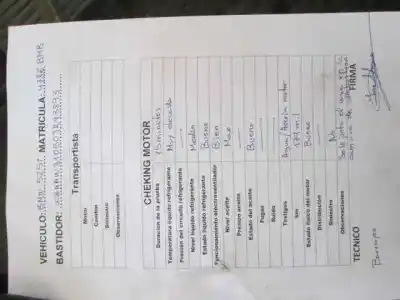 VEHICULO: BMW 525I MATRICULA: 4386 BMR
BASTIDOR:
Transportista
Motor
Cambio
Siniestro
Observaciones
CHEKING MOTOR
Duracion de la prueba 15 minutos
Temperatura liquido refrigerante Muy elevada
Presion del circuito refrigerante
Nivel liquido refrigerante Medio
Estado liquido refrigerante Bueno
Funcionamiento electroventilador Bien
Nivel aceite Max
Presion aceite
Estado del aceite Bueno
Fugas
Ruido
Testigos Agua/Averia motor
km
Estado fisico del motor Bueno
Distribución
Siniestro No
Observaciones Sale
TECNICO FIRMA